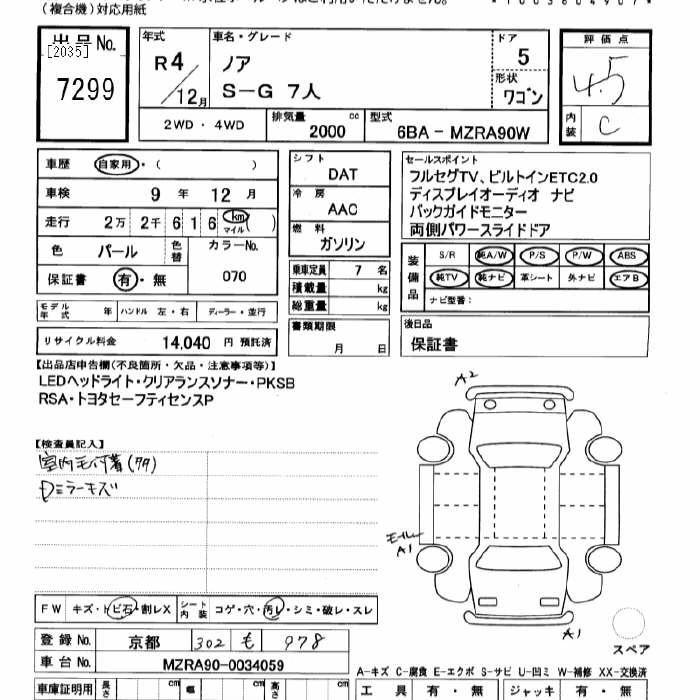 (複合機)対応用紙
出品No.
[2035]
7299
年式
R4
12月
車名・グレード
ノア
S-G 7人
ドア
5
形状
ワゴン
評価点
4.5
内装
C
2WD・4WD
排気量
cc
2000
型式
6BA-MZRA90W
車歴 自家用・( )
車検 9年 12月
走行 2万 2千 6 1 6 km マイル( )
色 パール 色替 カラーNo.
保証書 有・無 070
シフト
DAT
冷房
AAC
燃料
ガソリン
乗車定員 7 名
積載量 kg
総重量 kg
書類期限
月 日
セールスポイント
フルセグTV、ビルトインETC2.0
ディスプレイオーディオ ナビ
バックガイドモニター
両側パワースライドドア
装備品
S/R 純A/W P/S P/W ABS
純TV 純ナビ 革シート 外ナビ エアB
ナビ型番:
モデル年式 年 ハンドル 左・右 ディーラー・並行
リサイクル料金 14,040 円 預託済
後日品
保証書
【出品店申告欄(不良箇所・欠品・注意事項等)】
LEDヘッドライト・クリアランスソナー・PKSB
RSA・トヨタセーフティセンスP
【検査員記入】
室内毛付着(タタ)
Dミラーキズ
A2
モール
A1
A1
スペア
FW キズ・トビ石・割レX シート内装 コゲ・穴・汚レ・シミ・破レ・スレ
登録No. 京都 302 も 978
車台No. MZRA90-0034059
A-キズ C-腐食 E-エクボ S-サビ U-凹ミ W-補修 XX-交換済
車庫証明用 長さ cm 幅 cm 高さ cm
工具 有・無 ジャッキ 有・無